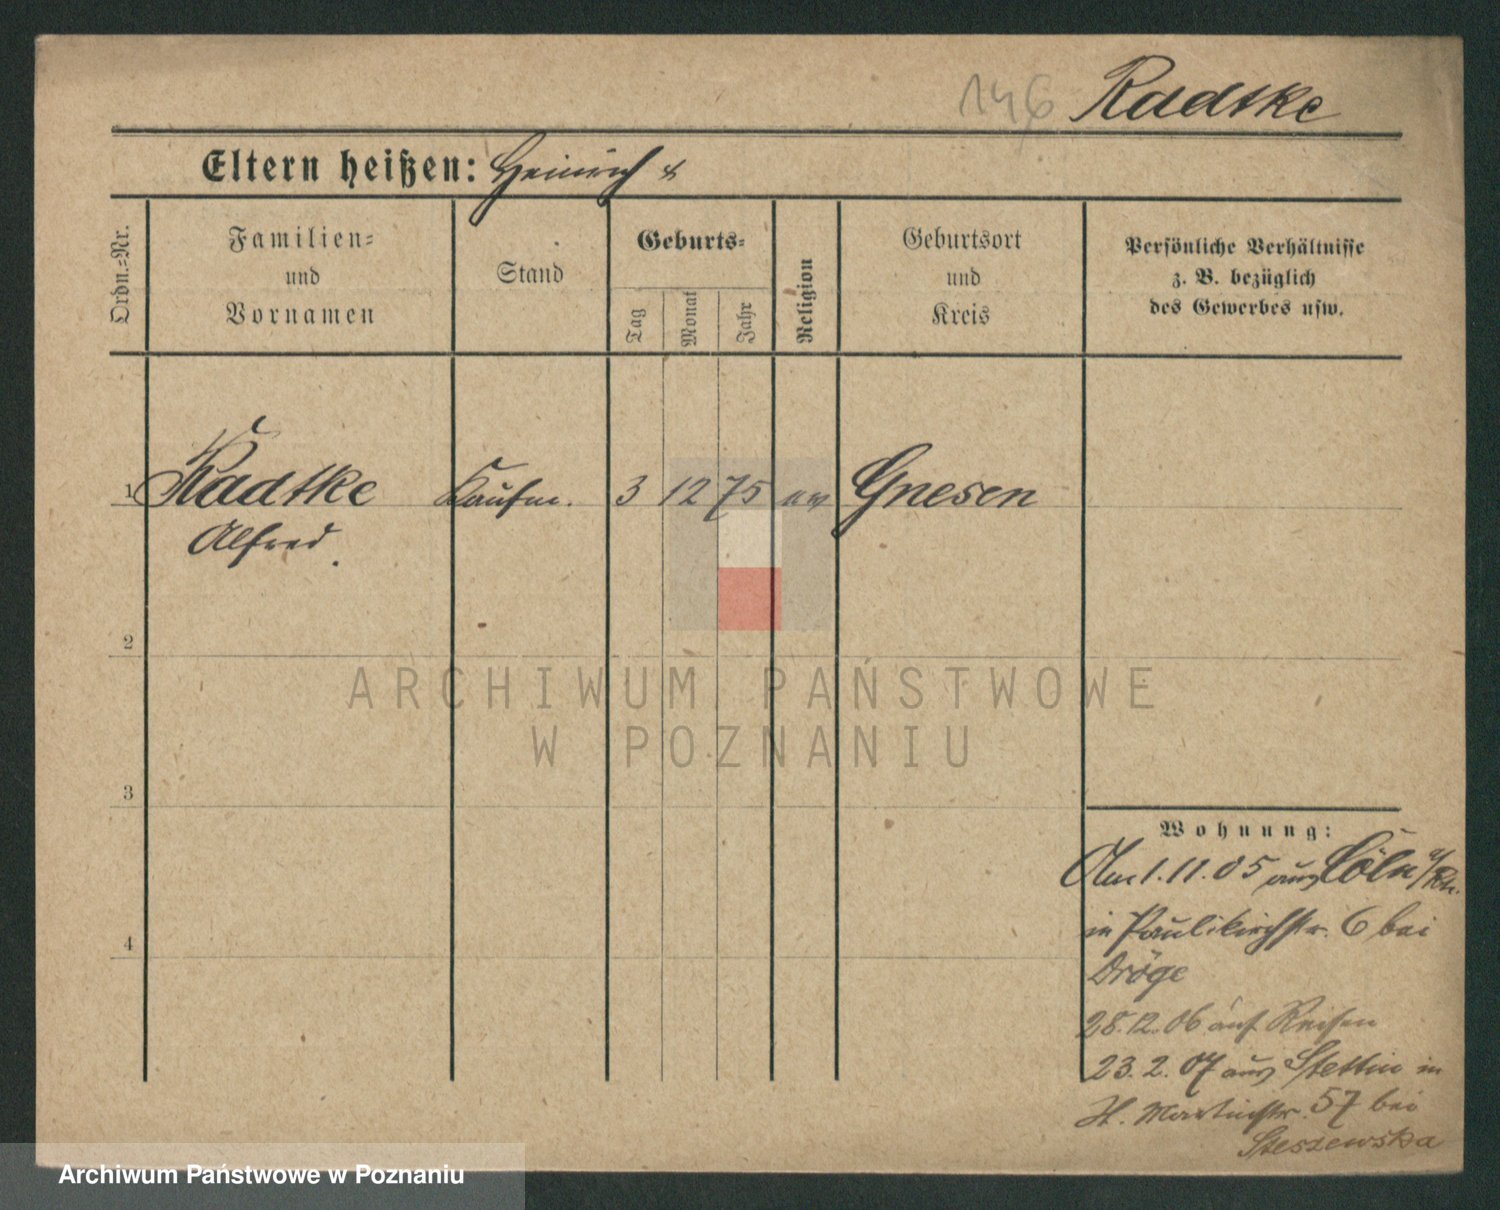 146 Radtke
Eltern heißen: Heinrich &
Ordn.-Nr.
Familien-
und
Vornamen
Stand
Geburts-
Tag
Monat
Jahr
Religion
Geburtsort
und
Kreis
Persönliche Verhältnisse
z. B. bezüglich
des Gewerbes usw.
1 Radtke Kaufm. 3 12 75 ev Gnesen
Alfred.
2
3
4
Wohnung:
Am 1.11.05 aus Cöln a/Rh.
in Paulikirchstr. 6 bei
Dröge
28.12.06 auf Reisen
23.2.07 aus Stettin in
St. Martinstr. 57 bei
Steszewska
ARCHIWUM PAŃSTWOWE
W POZNANIU
Archiwum Państwowe w Poznaniu